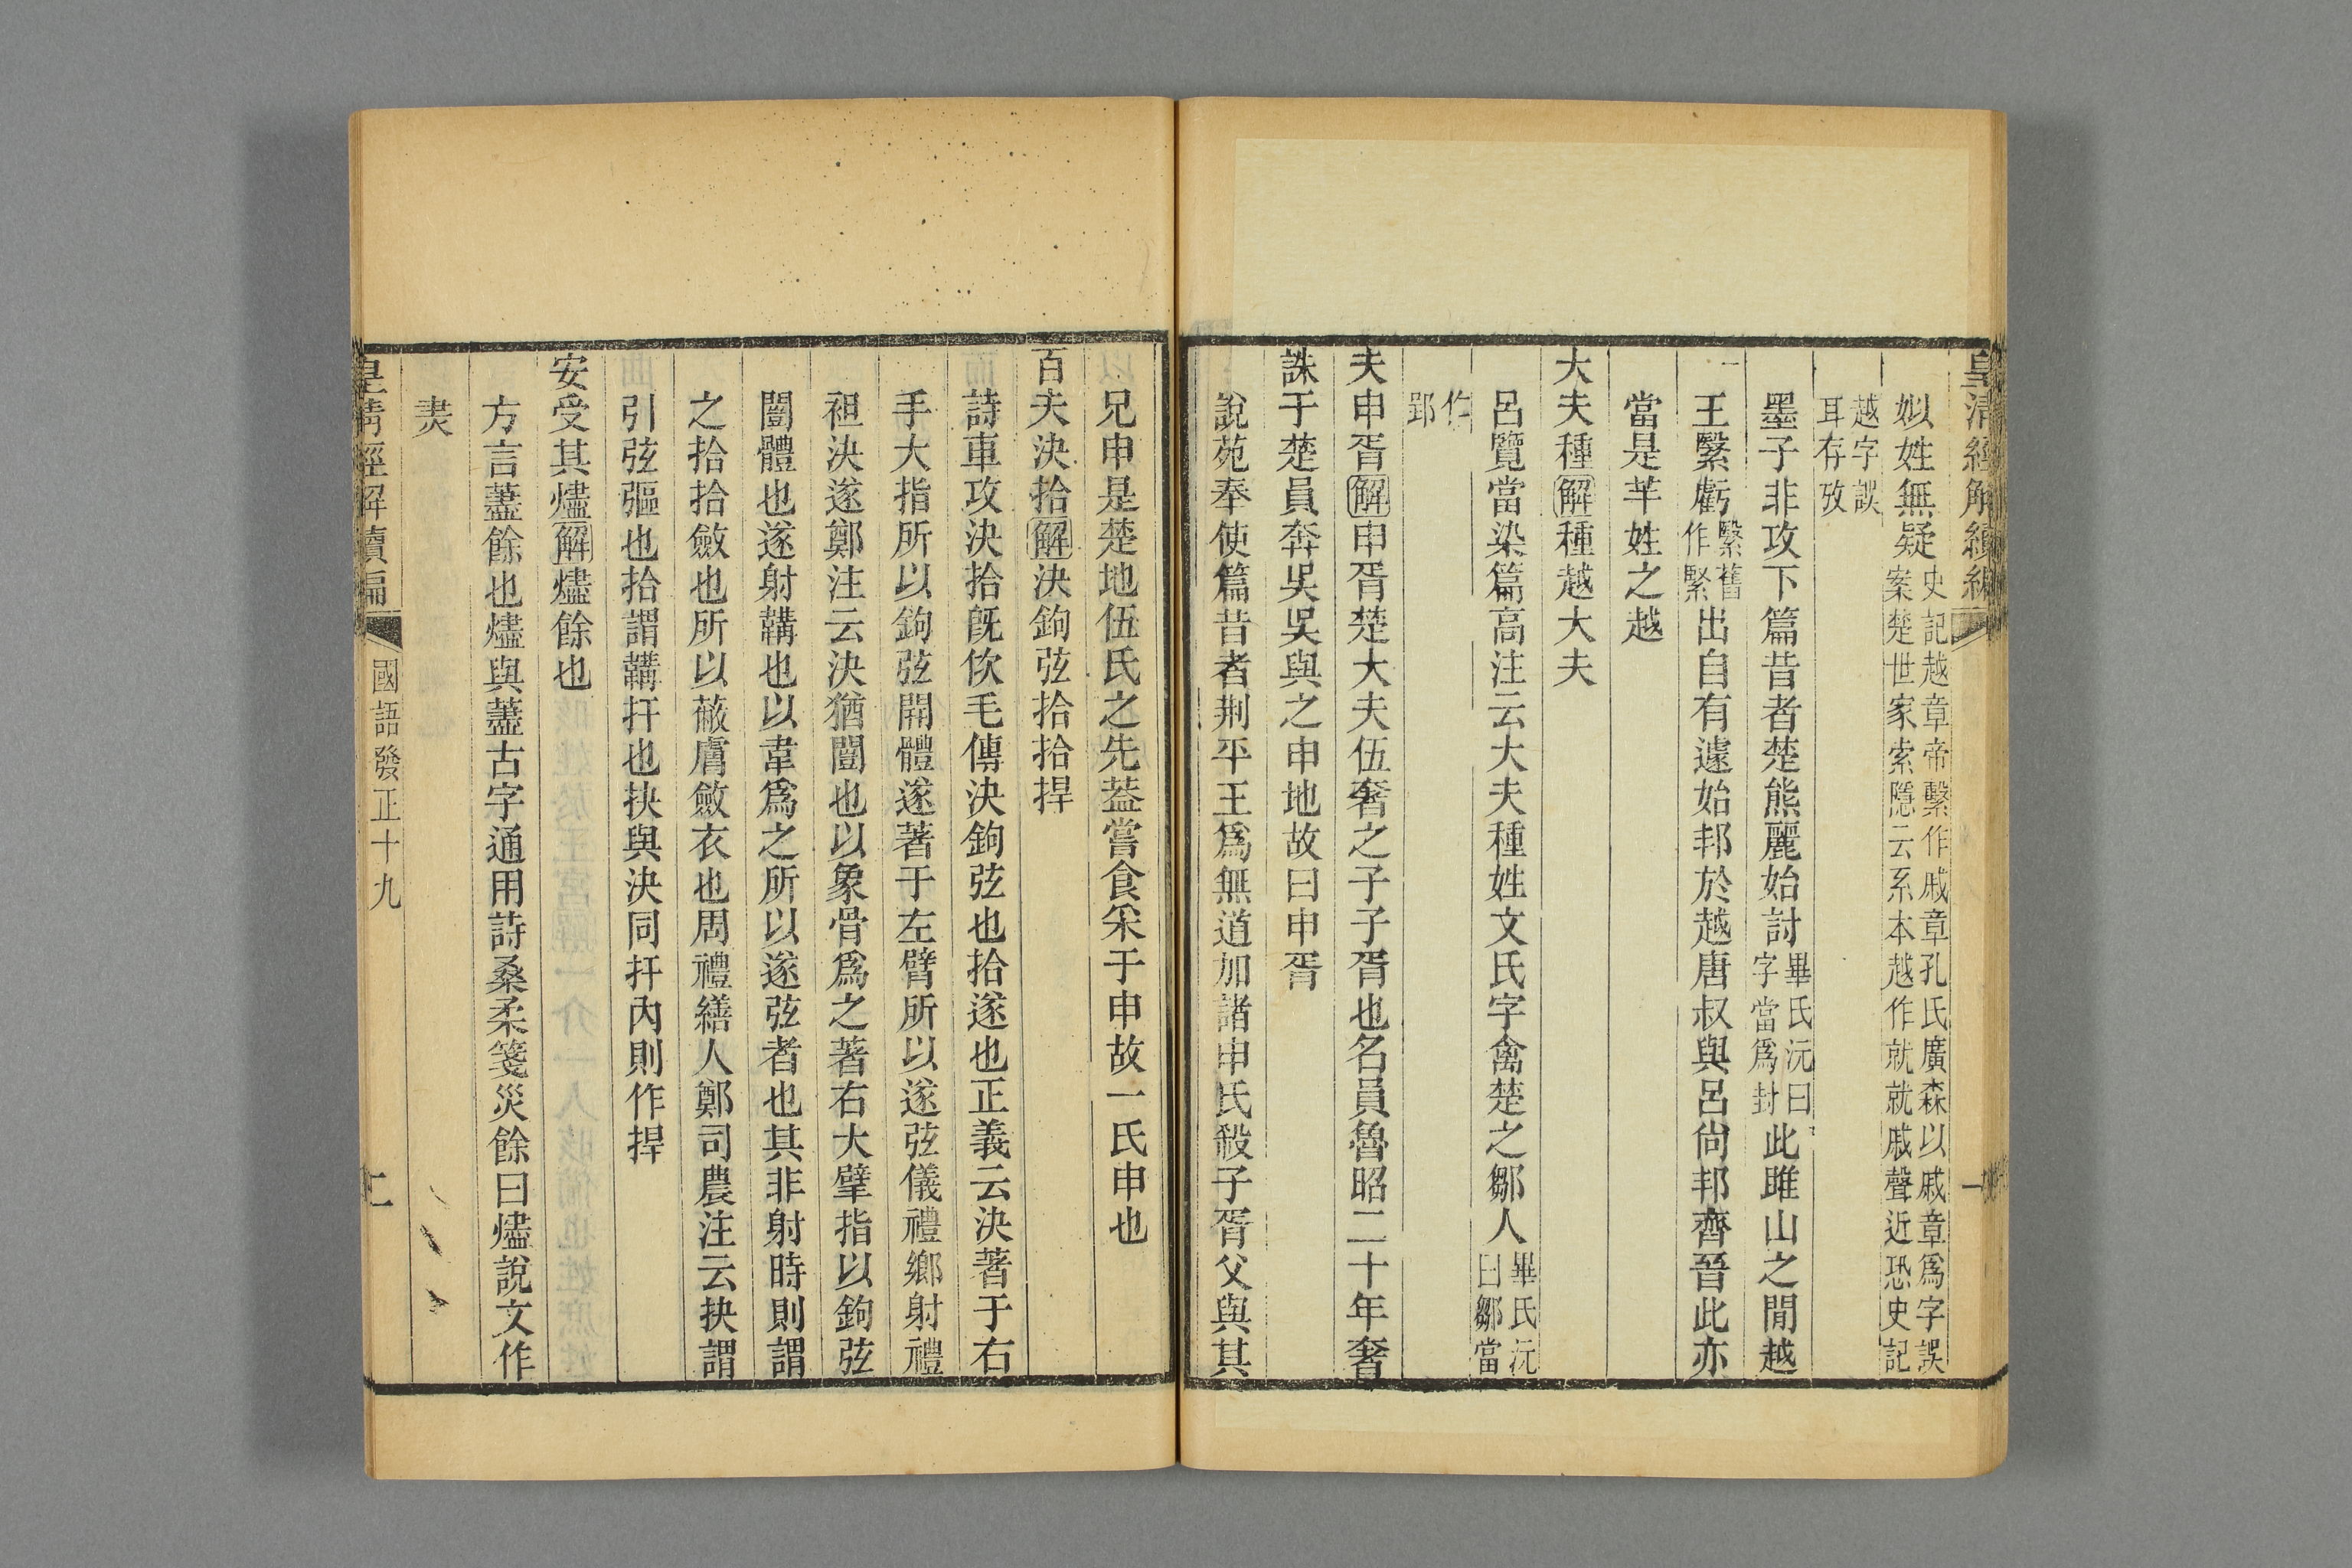 皇清經解續編
一
姒姓無疑史記越章帝繫作戚章孔氏廣森以戚章爲字誤案楚世家索隱云系本越作就就戚聲近恐史記
越字誤耳存攷
墨子非攻下篇昔者楚熊麗始討畢氏沅曰字當爲封此雎山之閒越
王繄虧繄舊作緊出自有遽始邦於越唐叔與呂尙邦齊晉此亦
當是芈姓之越
大夫種解種越大夫
呂覽當染篇高注云大夫種姓文氏字禽楚之鄒人畢氏沅曰鄒當
作郢
夫申胥解申胥楚大夫伍奢之子子胥也名員魯昭二十年奢
誅于楚員奔吳吳與之申地故曰申胥
說苑奉使篇昔者荆平王爲無道加諸申氏殺子胥父與其
兄申是楚地伍氏之先葢嘗食采于申故一氏申也
百夫決拾解決鉤弦拾拾捍
詩車攻決拾旣佽毛傳決鉤弦也拾遂也正義云決著于右
手大指所以鉤弦開體遂著于左臂所以遂弦儀禮鄉射禮
袒決遂鄭注云決猶闓也以象骨爲之著右大擘指以鉤弦
闓體也遂射韝也以韋爲之所以遂弦者也其非射時則謂
之拾拾斂也所以蔽膚斂衣也周禮繕人鄭司農注云抉謂
引弦彄也拾謂韝扞也抉與決同扞內則作捍
安受其燼解燼餘也
方言藎餘也燼與藎古字通用詩桑柔箋災餘曰燼說文作
㶳
皇清經解續編
國語發正十九
二